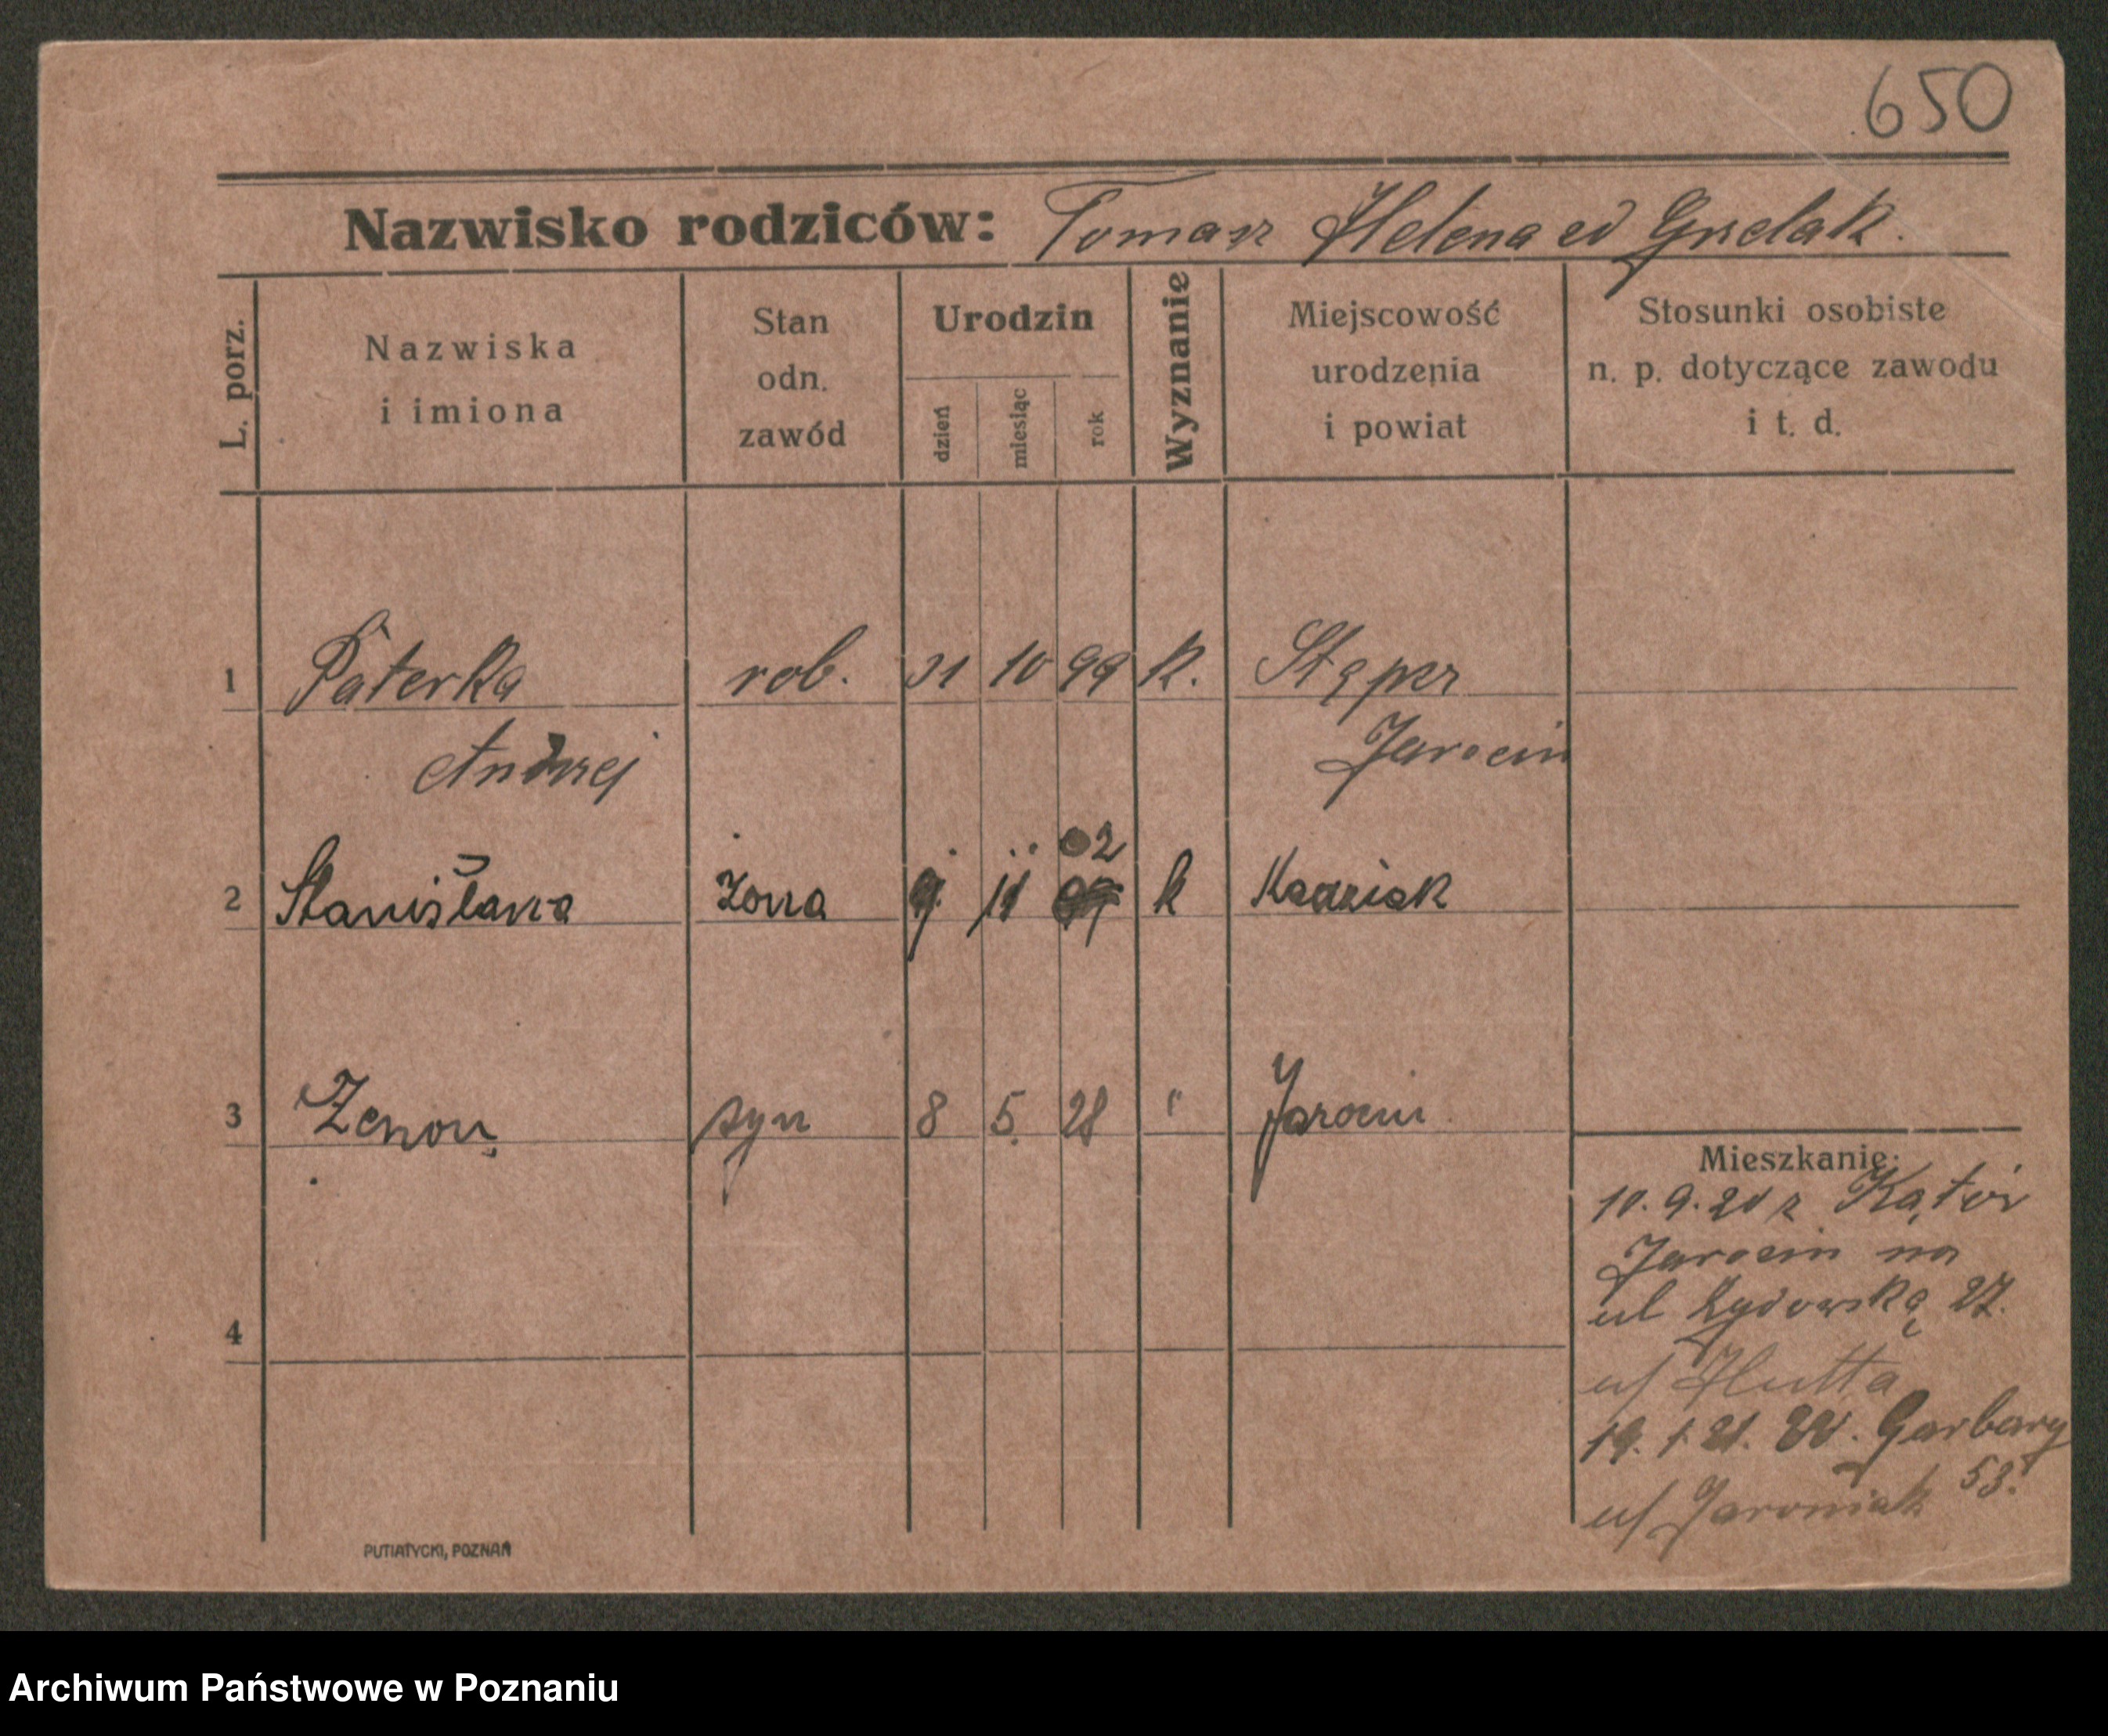 650
Nazwisko rodziców: Tomasz Helena zd Grzelak.
L. porz.
Nazwiska
i imiona
Stan
odn.
zawód
Urodzin
dzień
miesiąc
rok
Wyznanie
Miejscowość
urodzenia
i powiat
Stosunki osobiste
n. p. dotyczące zawodu
i t. d.
1 Paterka rob. 31 10 99 k.
Andrzej Jarocin
02
2 Stanisława żona 9 11 k
3 Zenon syn 8 5 28 " Jarocin
Mieszkanie:
10. 9. 20 z Kątów
Jarocin na
ul Żydowską 27.
u/ Hutta
19. 1. 21. Garbary
53.
u/
4
PUTIATYCKI, POZNAŃ
Archiwum Państwowe w Poznaniu